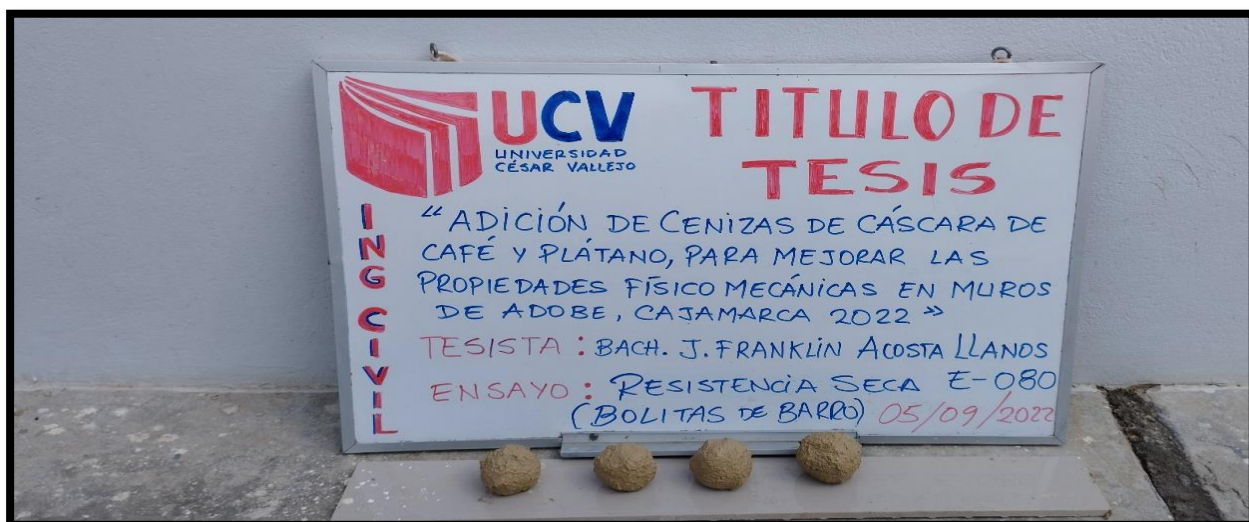 UCV
UNIVERSIDAD
CÉSAR VALLEJO
TITULO DE
TESIS
ING CIVIL
"ADICIÓN DE CENIZAS DE CÁSCARA DE
CAFÉ Y PLÁTANO, PARA MEJORAR LAS
PROPIEDADES FÍSICO MECÁNICAS EN MUROS
DE ADOBE, CAJAMARCA 2022"
TESISTA : BACH. J. FRANKLIN ACOSTA LLANOS
ENSAYO : RESISTENCIA SECA E-080
(BOLITAS DE BARRO) 05/09/2022